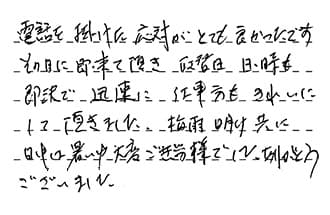 電話を掛けた応対がとても良かったです
その日に即来て頂き 取替日 日時も
即決で 迅速に 仕事方も きれいに
して 頂きました。 梅雨明け共に
日中は暑い中大変ご苦労様でした。ありがとう
ございました